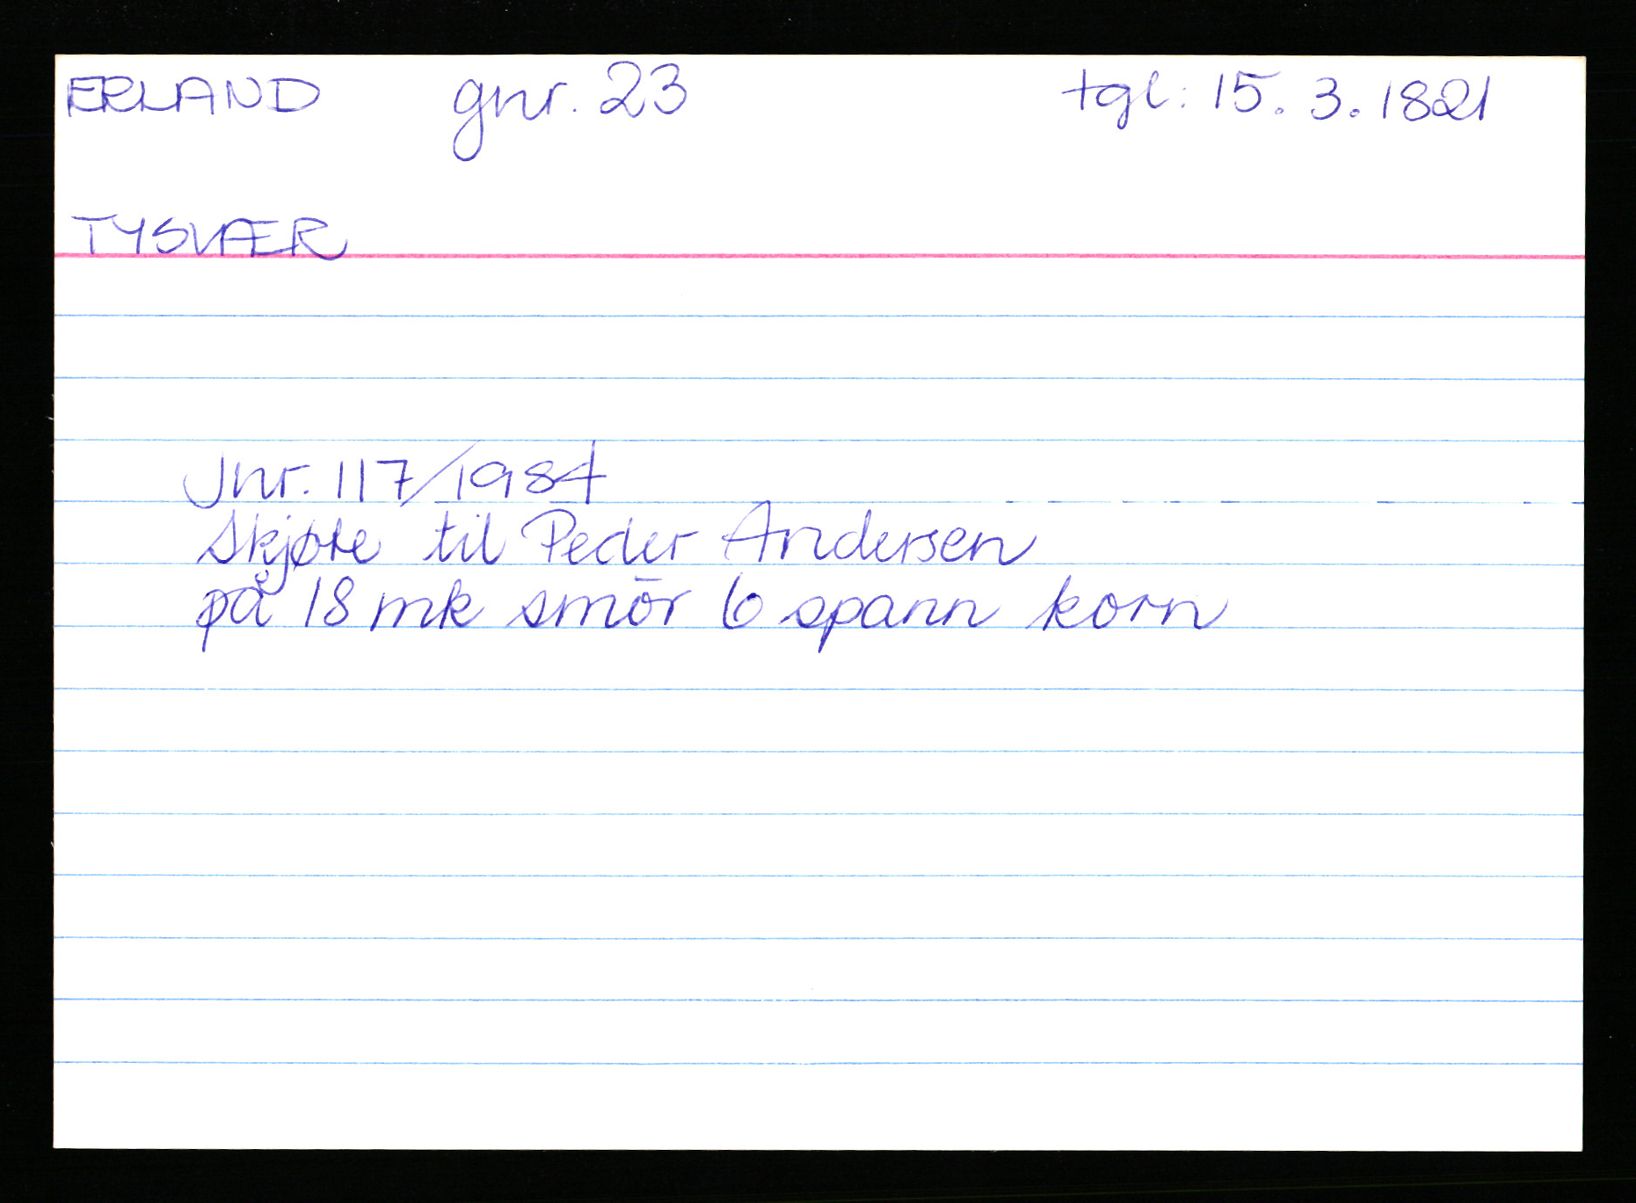 ERLAND gnr. 23 tgl: 15. 3. 1821
TYSVÆR
Jnr. 117/1984
Skjøte til Peder Andersen
på 18 mk smör 6 spann korn